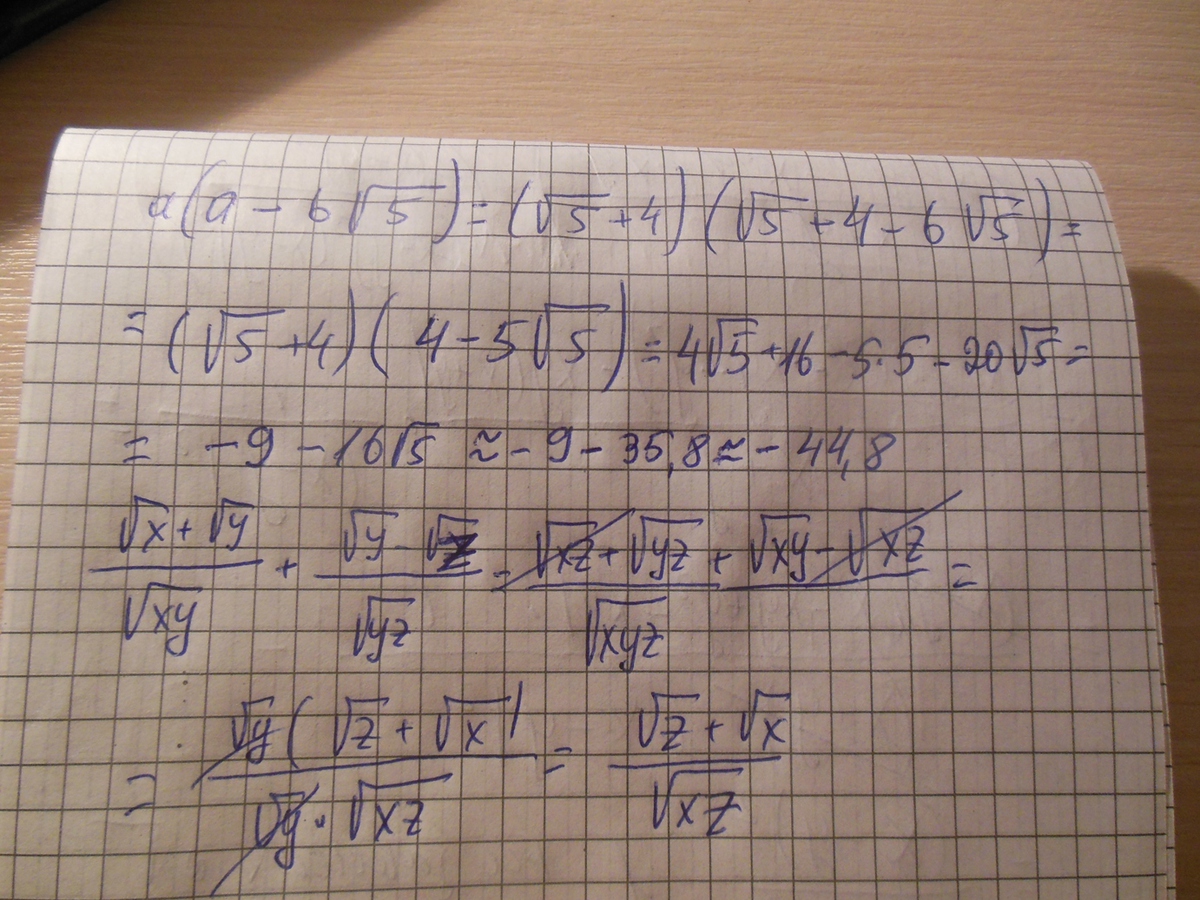 a(a - 6√5) = (√5 + 4)(√5 + 4 - 6√5) =
= (√5 + 4)(4 - 5√5) = 4√5 + 16 - 5·5 - 20√5 =
= -9 - 16√5 ≈ -9 - 35,8 ≈ -44,8
(√x + √y)/√xy + (√y - √z)/√yz = (√xz + √yz + √xy - √xz)/√xyz =
= √y(√z + √x)/(√y · √xz) = (√z + √x)/√xz